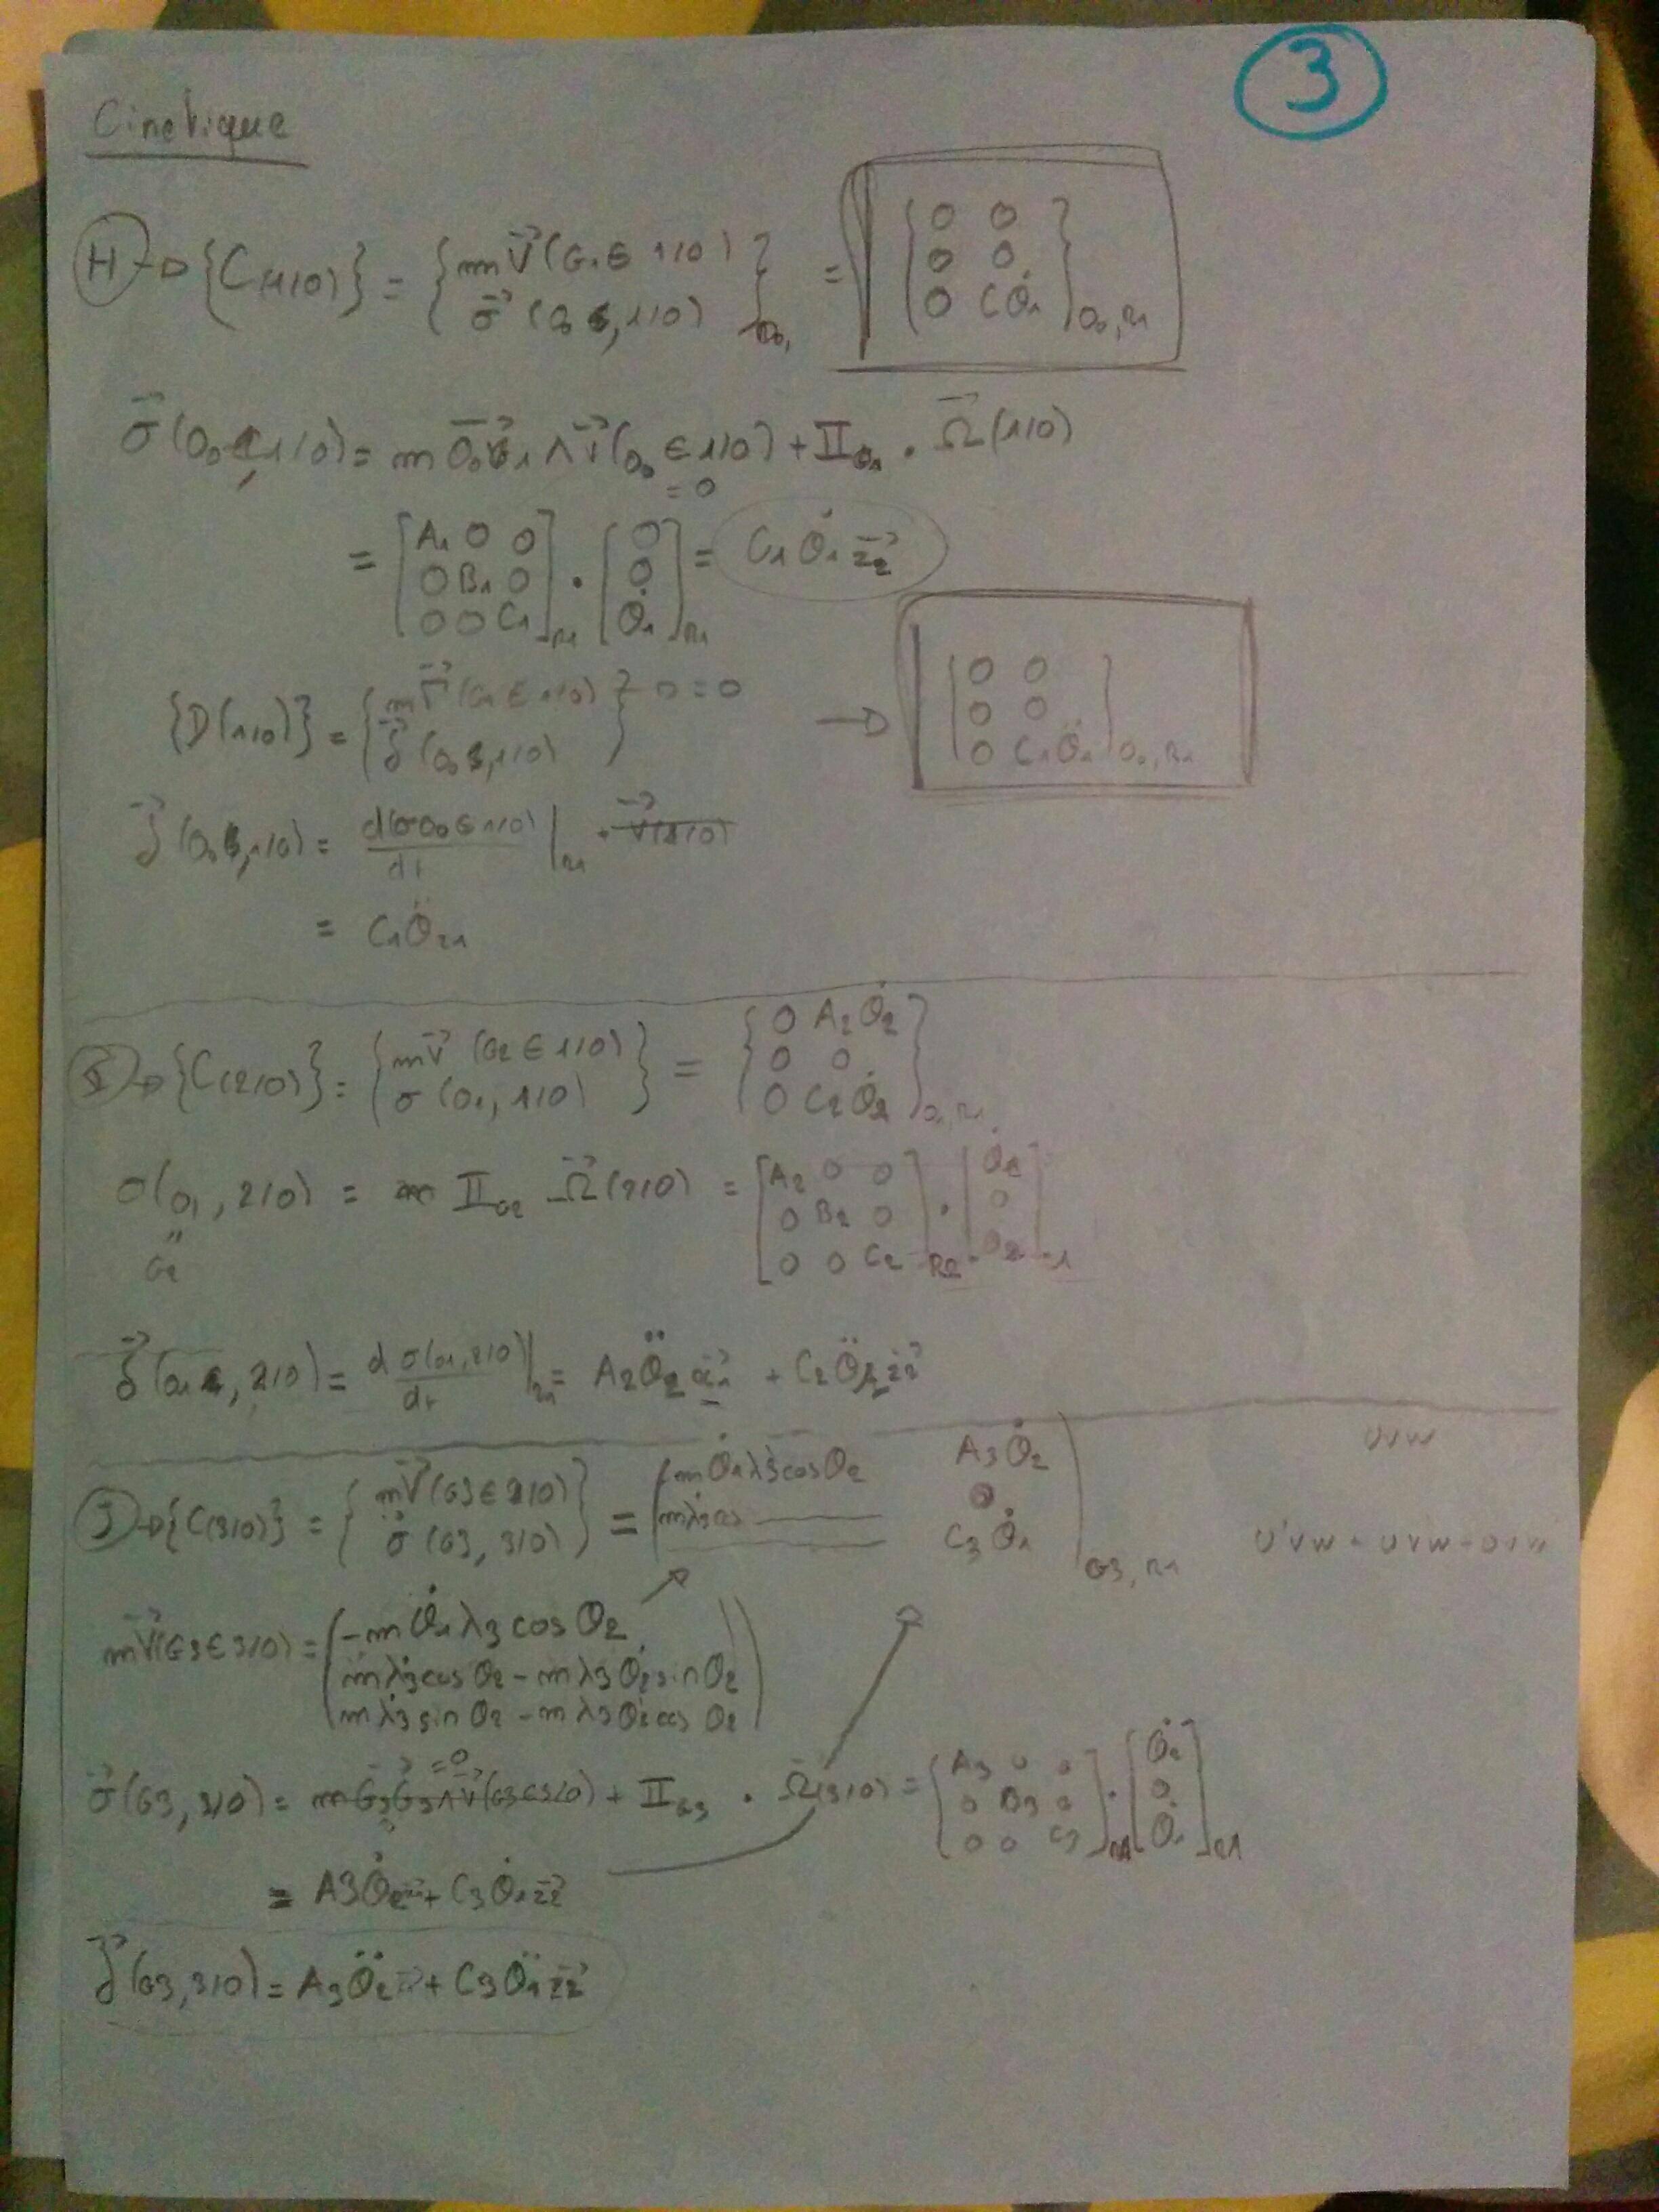 3
Cinetique
H → {C(1/0)} = { m V⃗ (G₁ ∈ 1/0) ; σ⃗ (O₀, 1/0) }O₀, = { 0 0 ; 0 0 ; 0 Cθ̇₁ }O₀,R₁
σ⃗ (O₀, 1/0) = m O₀G₁ ∧ V⃗ (O₀ ∈ 1/0) + II . Ω⃗ (1/0)
= 0
= [ A₁ 0 0 ; 0 B₁ 0 ; 0 0 C₁ ]R₁ . [ 0 ; 0 ; θ̇₁ ]R₁ = C₁ θ̇₁ z₂⃗
{D(1/0)} = { m Γ⃗ (G₁ ∈ 1/0) ; δ⃗ (O₀, 1/0) } → = 0 → { 0 0 ; 0 0 ; 0 C₁θ̈₁ }O₀,R₁
δ⃗ (O₀, 1/0) = d(σ O₀ ∈ 1/0)/dt |R₁
= C₁θ̈
I → {C(2/0)} = { m V⃗ (G₂ ∈ 1/0) ; σ (O₁, 1/0) } = { 0 A₂θ̇₂ ; 0 0 ; 0 C₂θ̇₂ }
σ(O₁, 2/0) = II G₂ Ω⃗ (2/0) = [ A₂ 0 0 ; 0 B₂ 0 ; 0 0 C₂ ]R₂ . [ θ̇₂ ; 0 ; θ̇₂ ]
"
G₂
δ⃗ (O₁, 2/0) = d σ(O₁, 2/0)/dt | = A₂θ̈₂ x₁⃗ + C₂θ̈ z₂⃗
J → {C(3/0)} = { m V⃗ (G3 ∈ 2/0) ; σ⃗ (G3, 3/0) } = ( m θ̇₁ λ3 cos θ₂ A₃θ̇₂ ; mλ̇3 cos 0 ; C₃ θ̇₁ ) G3, R₁
UVW
U'VW
m V⃗ (G3 ∈ 3/0) = ( -m θ̇₁ λ3 cos θ₂ ; m λ̇3 cos θ₂ - m λ3 θ̇₂ sin θ₂ ; m λ̇3 sin θ₂ - m λ3 θ̇₂ cos θ₂ )
= 0
σ⃗ (G3, 3/0) = m G₃G₃ ∧ V⃗ (G3 ∈ 3/0) + II G₃ . Ω⃗ (3/0) = [ A₃ 0 0 ; 0 B₃ 0 ; 0 0 C₃ ]R₁ . [ θ̇₂ ; 0 ; θ̇₁ ]R₁
= A3 θ̇₂ + C₃ θ̇₁ z₂⃗
δ⃗ (G3, 3/0) = A₃ θ̈₂ + C₃ θ̈₁ z₂⃗